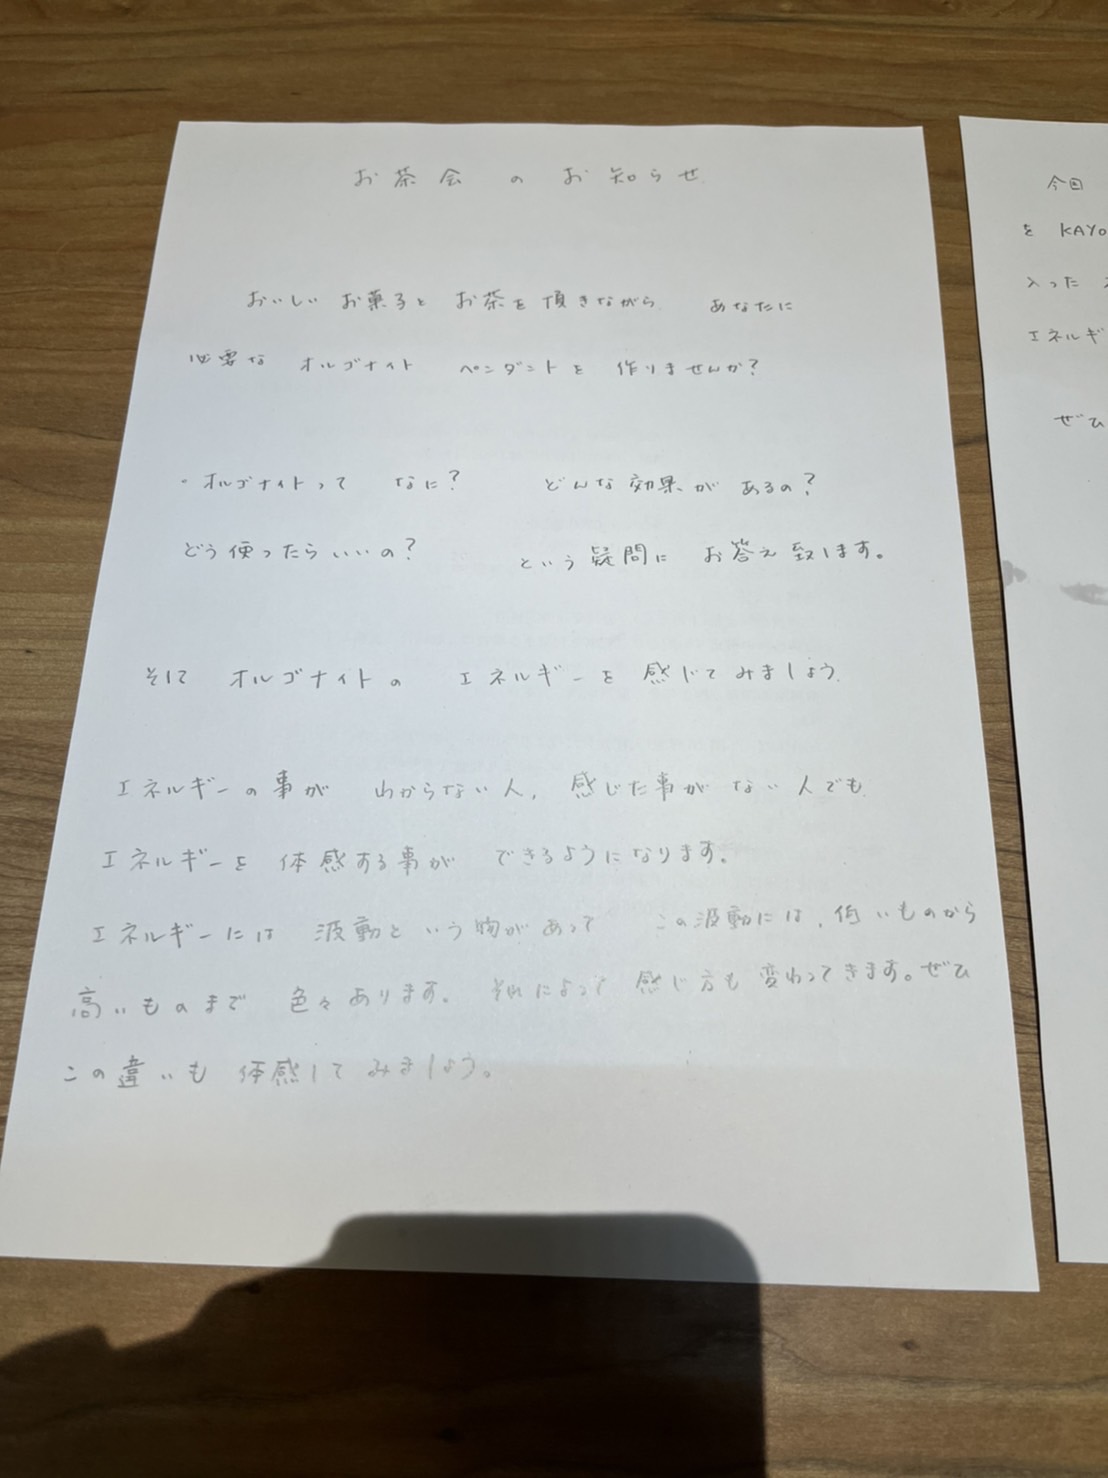 お茶会のお知らせ
おいしいお菓子とお茶を頂きながら あなたに
必要な オルゴナイト ペンダントを 作りませんか?
・オルゴナイトって なに? どんな効果があるの?
どう使ったらいいの? という疑問に お答え致します。
そして オルゴナイトの エネルギーを 感じてみましょう.
エネルギーの事が わからない人, 感じた事がない人でも
エネルギーを 体感する事が できるようになります。
エネルギーには 波動という物があって この波動には,低いものから
高いものまで 色々あります。それによって 感じ方も変わってきます。ぜひ
この違いも 体感してみましょう。
今回
を KAYO
入った
エネルギ
ぜひ